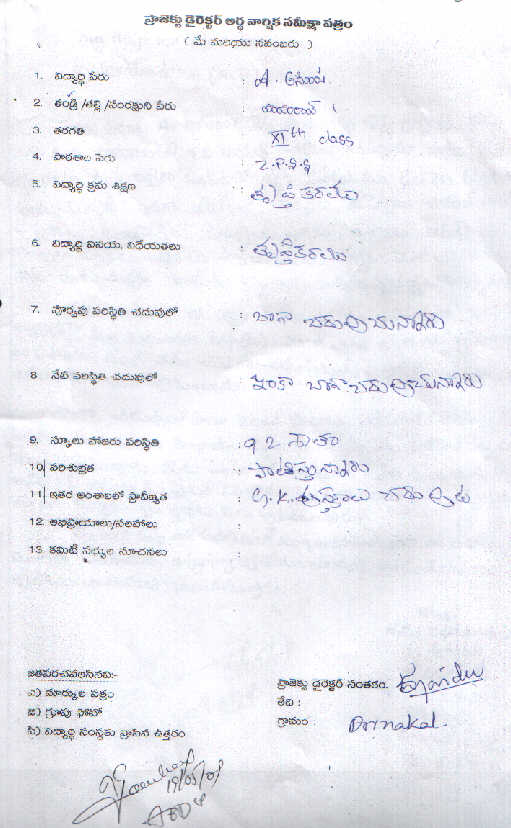 ప్రాజెక్టు డైరెక్టర్ అర్ధ వార్షిక సమీక్షా పత్రం
( మే మరియు నవంబరు )
1. విద్యార్థి పేరు : A.
2. తండ్రి /తల్లి /సంరక్షుని పేరు :
3. తరగతి : XIth class
4. పాఠశాల పేరు : Z.P.S.S
5. విద్యార్థి క్రమ శిక్షణ : తృప్తికరము
6. విద్యార్థి వినయ, విధేయతలు : తృప్తికరము
7. పూర్వపు పరిస్థితి చదువులో : బాగా చదువుచున్నాడు
8. నేటి పరిస్థితి చదువులో : ఇంకా బాగా చదువుచున్నాడు
9. స్కూలు హాజరు పరిస్థితి : 92 శాతం
10) పరిశుభ్రత : పాటిస్తున్నాడు
11) ఇతర అంశాలలో ప్రావీణ్యత : G.K. పుస్తకాలు చదువుట
12. అభిప్రాయాలు/సలహాలు :
13. కమిటీ సభ్యుల సూచనలు :
జతపరచవలసినవి:-
ఎ) మార్కుల పత్రం
బి) గ్రూపు ఫోటో
సి) విద్యార్థి సంస్థకు వ్రాసిన ఉత్తరం
ప్రాజెక్టు డైరెక్టర్ సంతకం.
తేది :
గ్రామం : Dornakal.
19/05/09